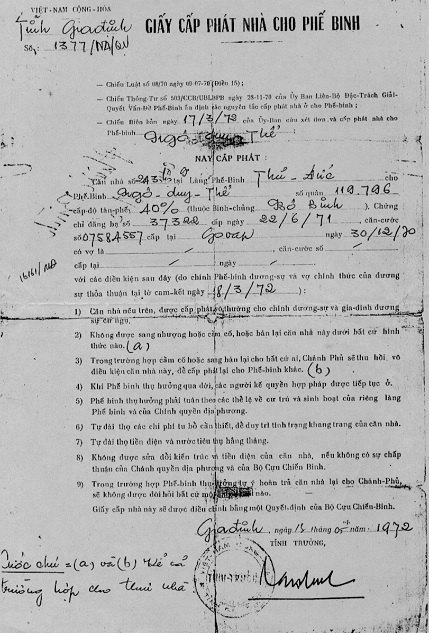 VIỆT-NAM CỘNG-HÒA
Tỉnh Gia định
Số: 1377/NĐ/QN
GIẤY CẤP PHÁT NHÀ CHO PHẾ BINH
— Chiếu Luật số 08/70 ngày 09-07-70 (Điều 15);
— Chiếu Thông-Tư số 503/CCB/UBLBPB ngày 28-11-70 của Ủy Ban Liên-Bộ Đặc-Trách Giải-
Quyết Vấn-Đề Phế-Binh ấn định các nguyên tắc cấp phát nhà ở cho Phế-binh;
— Chiếu Biên bản ngày 17/3/72 của Ủy-Ban cứu xét đơn và cấp phát nhà cho
Phế-binh Ngô-duy-Thể
NAY CẤP PHÁT :
Căn nhà số 243 tại Làng Phế-Binh Thủ-Đức cho
Phế-Binh Ngô-duy-Thể số quân 119.796
cấp-độ tàn-phế 40% (thuộc Binh-chủng Bộ Binh). Chứng
chỉ đăng bạ số 37322 cấp ngày 22/6/71, căn-cước
số 07584557 cấp tại Gò vấp ngày 30/12/70
có vợ là căn-cước số
cấp tại ngày
với các điều kiện sau đây (do chính Phế-binh đương-sự và vợ chính thức của đương
sự thỏa thuận tại tờ cam-kết ngày 18/3/72):
16161/NĐ
1) Căn nhà nêu trên, được cấp phát vô thường cho chính đương-sự và gia-đình đương
sự cư ngụ.
2) Không được sang nhượng hoặc cầm cố, hoặc bán lại căn nhà này dưới bất cứ hình
thức nào. (a)
3) Trong trường hợp cầm cố hoặc sang bán lại cho bất cứ ai, Chánh Phủ sẽ thu hồi vô
điều kiện căn nhà này, để cấp phát lại cho Phế-binh khác. (b)
4) Khi Phế binh thụ hưởng qua đời, các người kế quyền hợp pháp được tiếp tục ở.
5) Phế binh thụ hưởng phải tuân theo các thể lệ về cư trú và sinh hoạt của riêng làng
Phế binh và của Chính quyền địa phương.
6) Tự đài thọ các chi phí tu bổ cần thiết, để duy trì tình trạng khang trang của căn nhà.
7) Tự đài thọ tiền điện và nước tiêu thụ hằng tháng.
8) Không được sửa đổi kiến trúc và tiền diện của căn nhà, nếu không có sự chấp
thuận của Chánh quyền địa phương và của Bộ Cựu Chiến Binh.
9) Trong trường hợp Phế binh thụ hưởng tự ý hoàn trả căn nhà lại cho Chánh-Phủ,
sẽ không được đòi hỏi bất cứ một nào.
Giấy cấp nhà này sẽ được điều chỉnh bằng một Quyết-định của Bộ Cựu Chiến-Binh.
Gia định, ngày 13 tháng 05 năm 1972
TỈNH TRƯỞNG,
Cước chú = (a) và (b) kể cả
trường hợp cho thuê nhà.